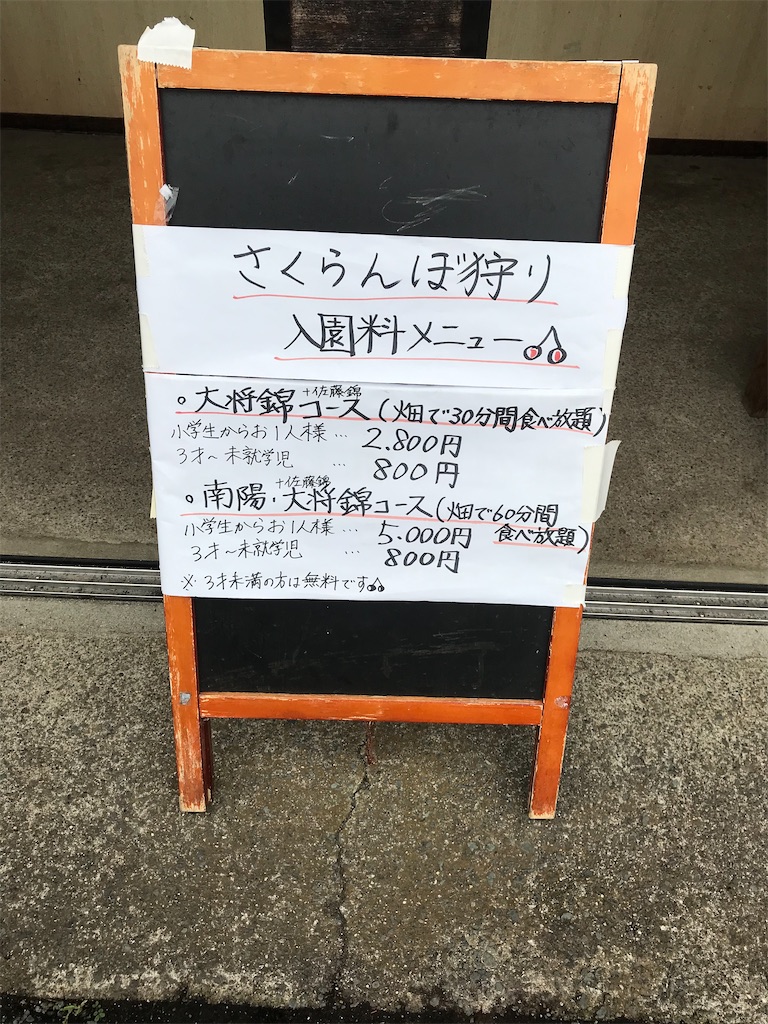 さくらんぼ狩り
入園料メニュー
+佐藤錦
○大将錦コース(畑で30分間食べ放題)
小学生からお1人様… 2.800円
3才～未就学児 … 800円
+佐藤錦
○南陽・大将錦コース(畑で60分間
食べ放題)
小学生からお1人様… 5.000円
3才～未就学児 … 800円
※3才未満の方は無料です